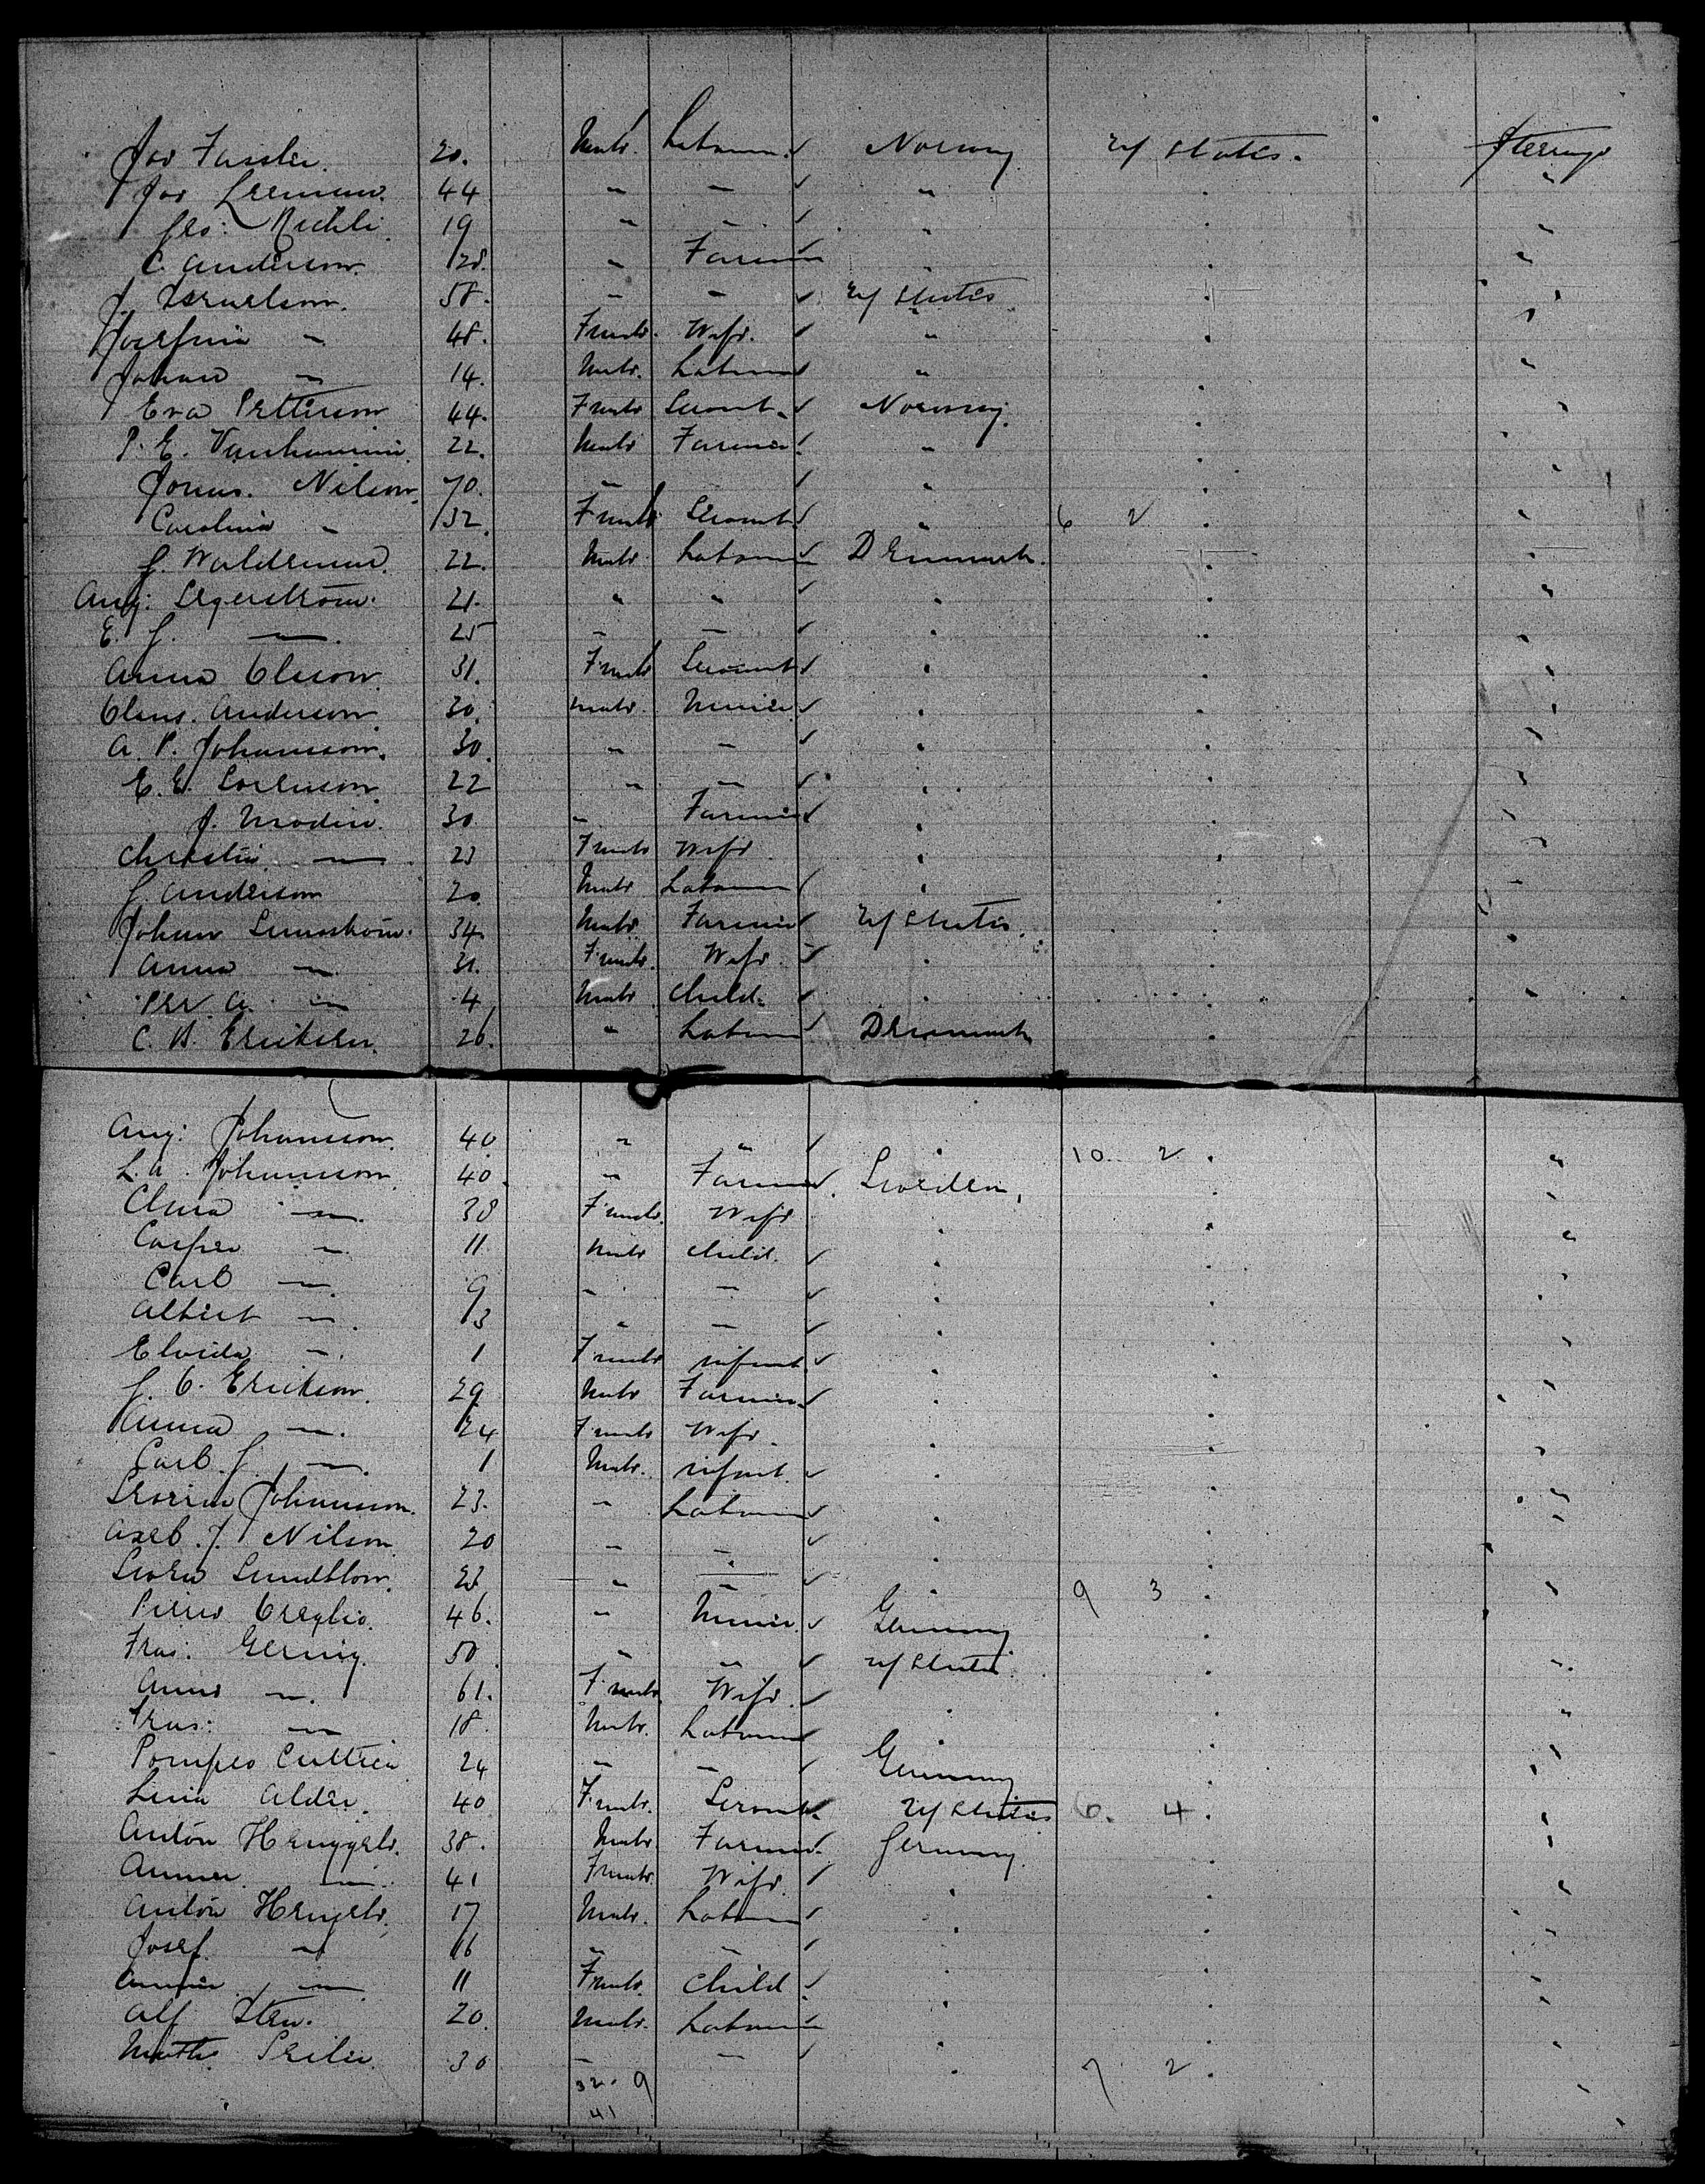 Jos Fassler 20. Male Labourer Norway U/States. Steerage
Jos Leeman. 44 " " " " "
Jos: Richli. 19 " " " " "
C. Anderson. 28. " Farmer " " "
J. Israelson. 58. " " U/States " "
Josefina " 48. Female Wife. " " "
Johan " 14. Male. Labourer " " "
Eva Petterson 44. Female Servant Norway. " "
P. E. 22. Male Farmer " "
Jonas. Nilson. 70. " " " "
Carolina " 32. Female Servant " 6 2 " "
J. Waldemar. 22. Male Labourer Denmark. " "
Aug: Segerström. 21. " " " " "
E. J. " 25 " " " " "
Anna Olsson. 31. Female Servant " " "
Claus. Anderson 30. Male. Miner " " "
A. P. Johansson. 30. " " " " "
E. E. Sorenson. 22 " " " " "
J. Modin. 30. " Farmer " " "
Christin " 23 Female Wife " " "
J. Anderson 20. Male Labourer " " "
Johan 34. Male Farmer U/States. " "
Anna " 31. Female. Wife. " " "
Per. A. " 4 Male Child. " " "
C. B. Eriksen. 26. " Labourer Denmark " "
Aug: Johansson. 40. " " " 10 2 " "
L. A. Johansson. 40. " Farmer Sweden. " "
Clara " 38 Female. Wife " " "
Casper " 11 Male Child. " " "
Carl " 9 " " " " "
Albert " 3 " " " " "
Elvida " 1 Female infant. " " "
J. O. Erickson. 29 Male Farmer " " "
Anna " 24 Female Wife. " " "
Carl J. " 1 Male. infant. " " "
Johansson. 23. " Labourer " " "
Axel. J. Nilson. 20 " " " " "
Lundblom. 23 " " " 9 3 " "
Pierre 46. " Miner Germany " "
Fras: Gernig. 50. " " U/States " "
Anna " 61. Female Wife. " " "
Fras: " 18. Male. Labourer " " "
Pompeo 24 " " Germany " "
Lina Alder. 40 Female. Servant. U/States 6. 4 " "
Anton 38. Male Farmer. Germany. " "
" 41 Female Wife. " " "
Anton 17 Male. Labourer " " "
Josef " 16 " " " " "
Annie " 11 Female. Child " " "
Alf 20. Male. Labourer " " "
30 " " " 7 2 " "
32. 9
41